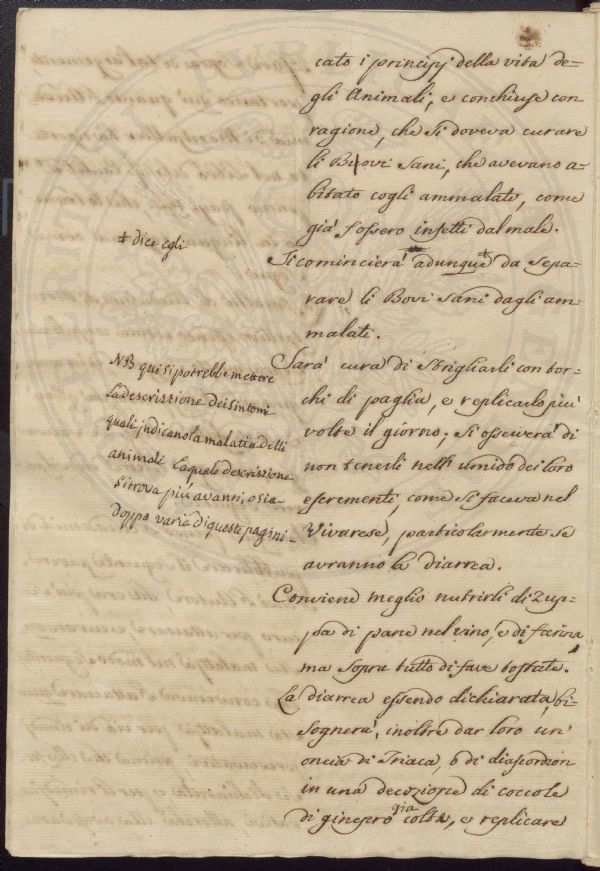 cato i principj della vita de-
gli Animali, e conchiuse con
ragione, che si doveva curare
li Bovi sani, che avevano a-
bitato cogli ammalati, come
già fossero infetti dal male.
‡ dice egli
Si comincierà adunque ‡ da sepa-
rare li Bovi sani dagli am-
malati.
NB qui si potrebbe mettere
la descrizzione dei sintomi
quali indicano la malatia delli
animali la quale descrizzione
si trova più avanti, o sia
doppo varie di queste pagini-
Sarà cura di strigliarli con tor-
chi di paglia, e replicarlo più
volte il giorno; si osserverà di
non tenerli nell umido dei loro
escrementi, come si faceva nel
Vivarese, particolarmente se
avranno la diarrea.
Conviene meglio nutrirli di zup-
pa di pane nel vino, e di farina,
ma sopra tutto di fave tostate.
La diarrea essendo dichiarata, bi-
sognerà, inoltre dar loro un'
oncia di Triaca, o di diascordion
in una decozione di coccole
di ginepro già colta, e replicare